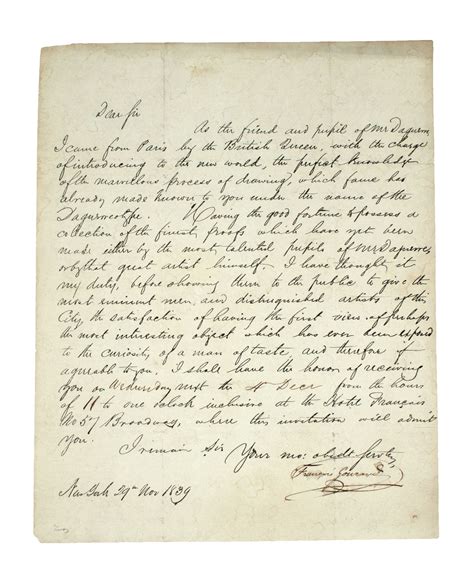 Dear Sir
As the friend and pupil of Mr Daguerre
I came from Paris by the British Queen, with the charge
of introducing to the new world, the perfect knowledge
of the marvellous process of drawing, which fame has
already made known to you under the name of the
Daguerreotype. Having the good fortune to possess a
collection of the finest proofs which have yet been
made either by the most talented pupils of Mr Daguerre,
or by that great artist himself, I have thought it
my duty, before showing them to the public to give the
most eminent men, and distinguished artists of this
City, the satisfaction of having the first view of perhaps
the most interesting object which has ever been exposed
to the curiosity of a man of taste and therefore if
agreeable to you. I shall have the honor of receiving
you on Wednesday next the 4 Decr from the hours
of 11 to one oclock inclusive at the Hotel Français
No 57 Broadway, where this invitation will admit
you.
I remain Sir
Your mo: obedt Servt
François Gouraud
New York 29th Nov 1839